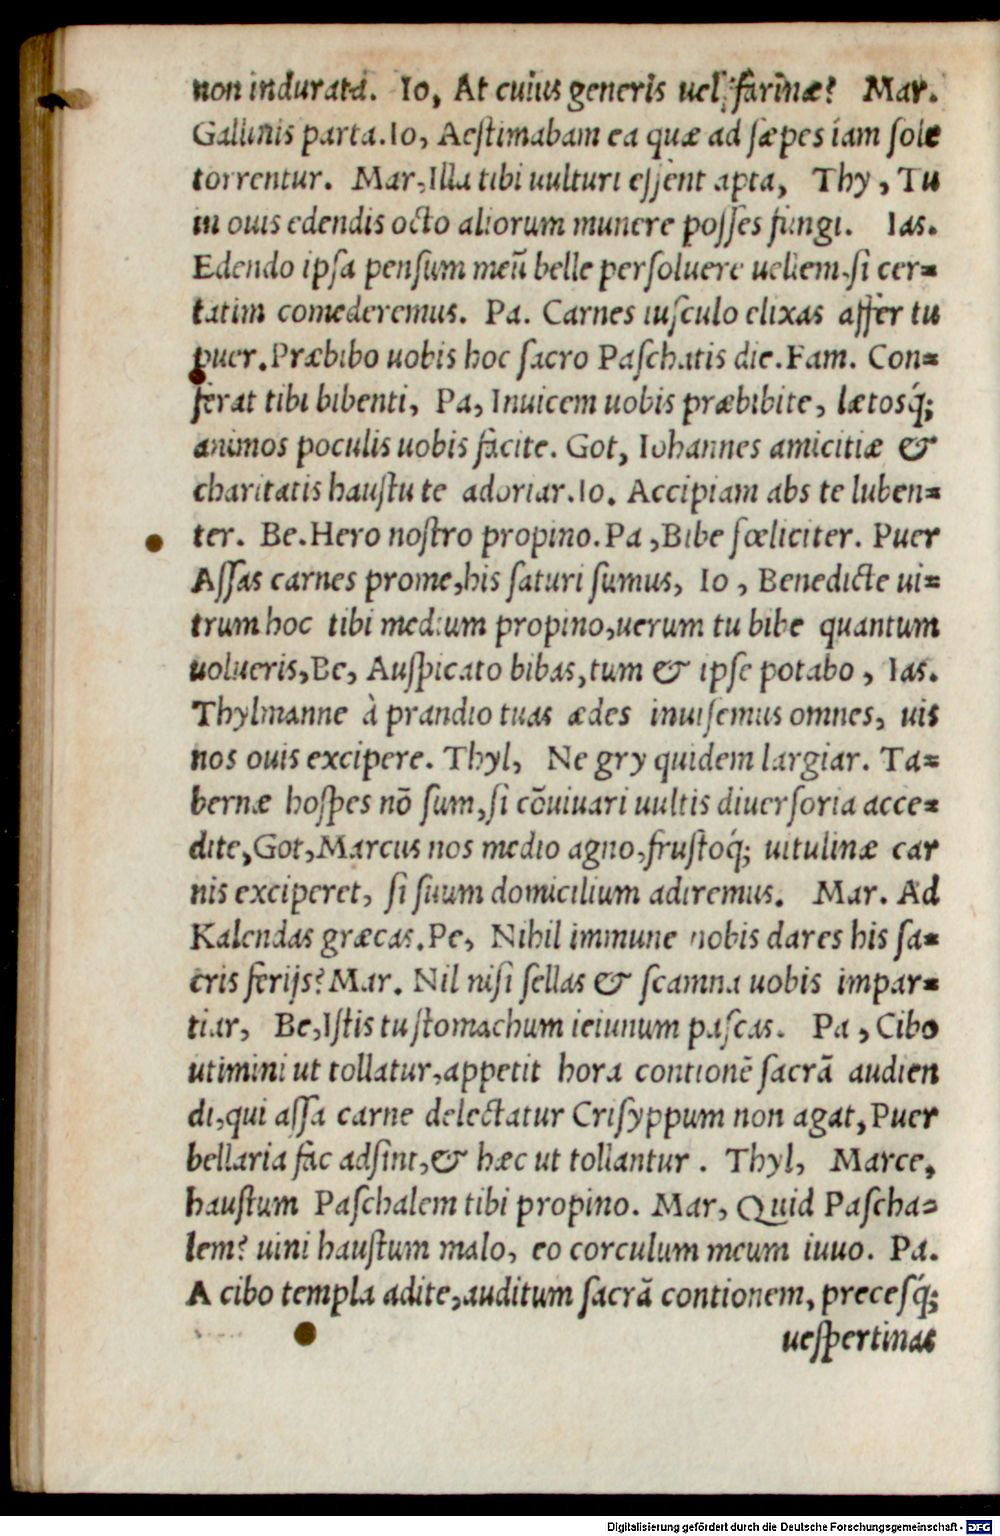 non indurata. Io, At cuius generis uel farinæ? Mar.
Gallinis parta. Io, Aestimabam ea quæ ad sæpes iam sole
torrentur. Mar, Illa tibi uulturi essent apta, Thy, Tu
in ouis edendis octo aliorum munere posses fungi. Ias.
Edendo ipsa pensum meū belle persoluere uellem, si cer=
tatim comederemus. Pa. Carnes iusculo elixas affer tu
puer. Præbibo uobis hoc sacro Paschatis die. Fam. Con=
ferat tibi bibenti, Pa, Inuicem uobis præbibite, lætosq́;
animos poculis uobis facite. Got, Iohannes amicitiæ &
charitatis haustu te adoriar. Io. Accipiam abs te luben=
ter. Be. Hero nostro propino. Pa, Bibe fœliciter. Puer
Assas carnes prome, his saturi sumus, Io, Benedicte ui=
trum hoc tibi medium propino, uerum tu bibe quantum
uolueris, Be, Auspicato bibas, tum & ipse potabo, Ias.
Thylmanne à prandio tuas ædes inuisemus omnes, uis
nos ouis excipere. Thyl, Ne gry quidem largiar. Ta=
bernæ hospes nō sum, si cōuiuari uultis diuersoria acce=
dite, Got, Marcus nos medio agno, frustoq́; uitulinæ car
nis exciperet, si suum domicilium adiremus. Mar. Ad
Kalendas græcas. Pe, Nihil immune nobis dares his sa=
cris ferijs? Mar. Nil nisi sellas & scamna uobis impar=
tiar, Be, Istis tu stomachum ieiunum pascas. Pa, Cibo
utimini ut tollatur, appetit hora contionē sacrā audien
di, qui assa carne delectatur Crisyppum non agat, Puer
bellaria fac adsint, & hæc ut tollantur. Thyl, Marce,
haustum Paschalem tibi propino. Mar, Quid Pascha=
lem? uini haustum malo, eo corculum meum iuuo. Pa.
A cibo templa adite, auditum sacrā contionem, precesq́;
uespertinas
Digitalisierung gefördert durch die Deutsche Forschungsgemeinschaft - DFG